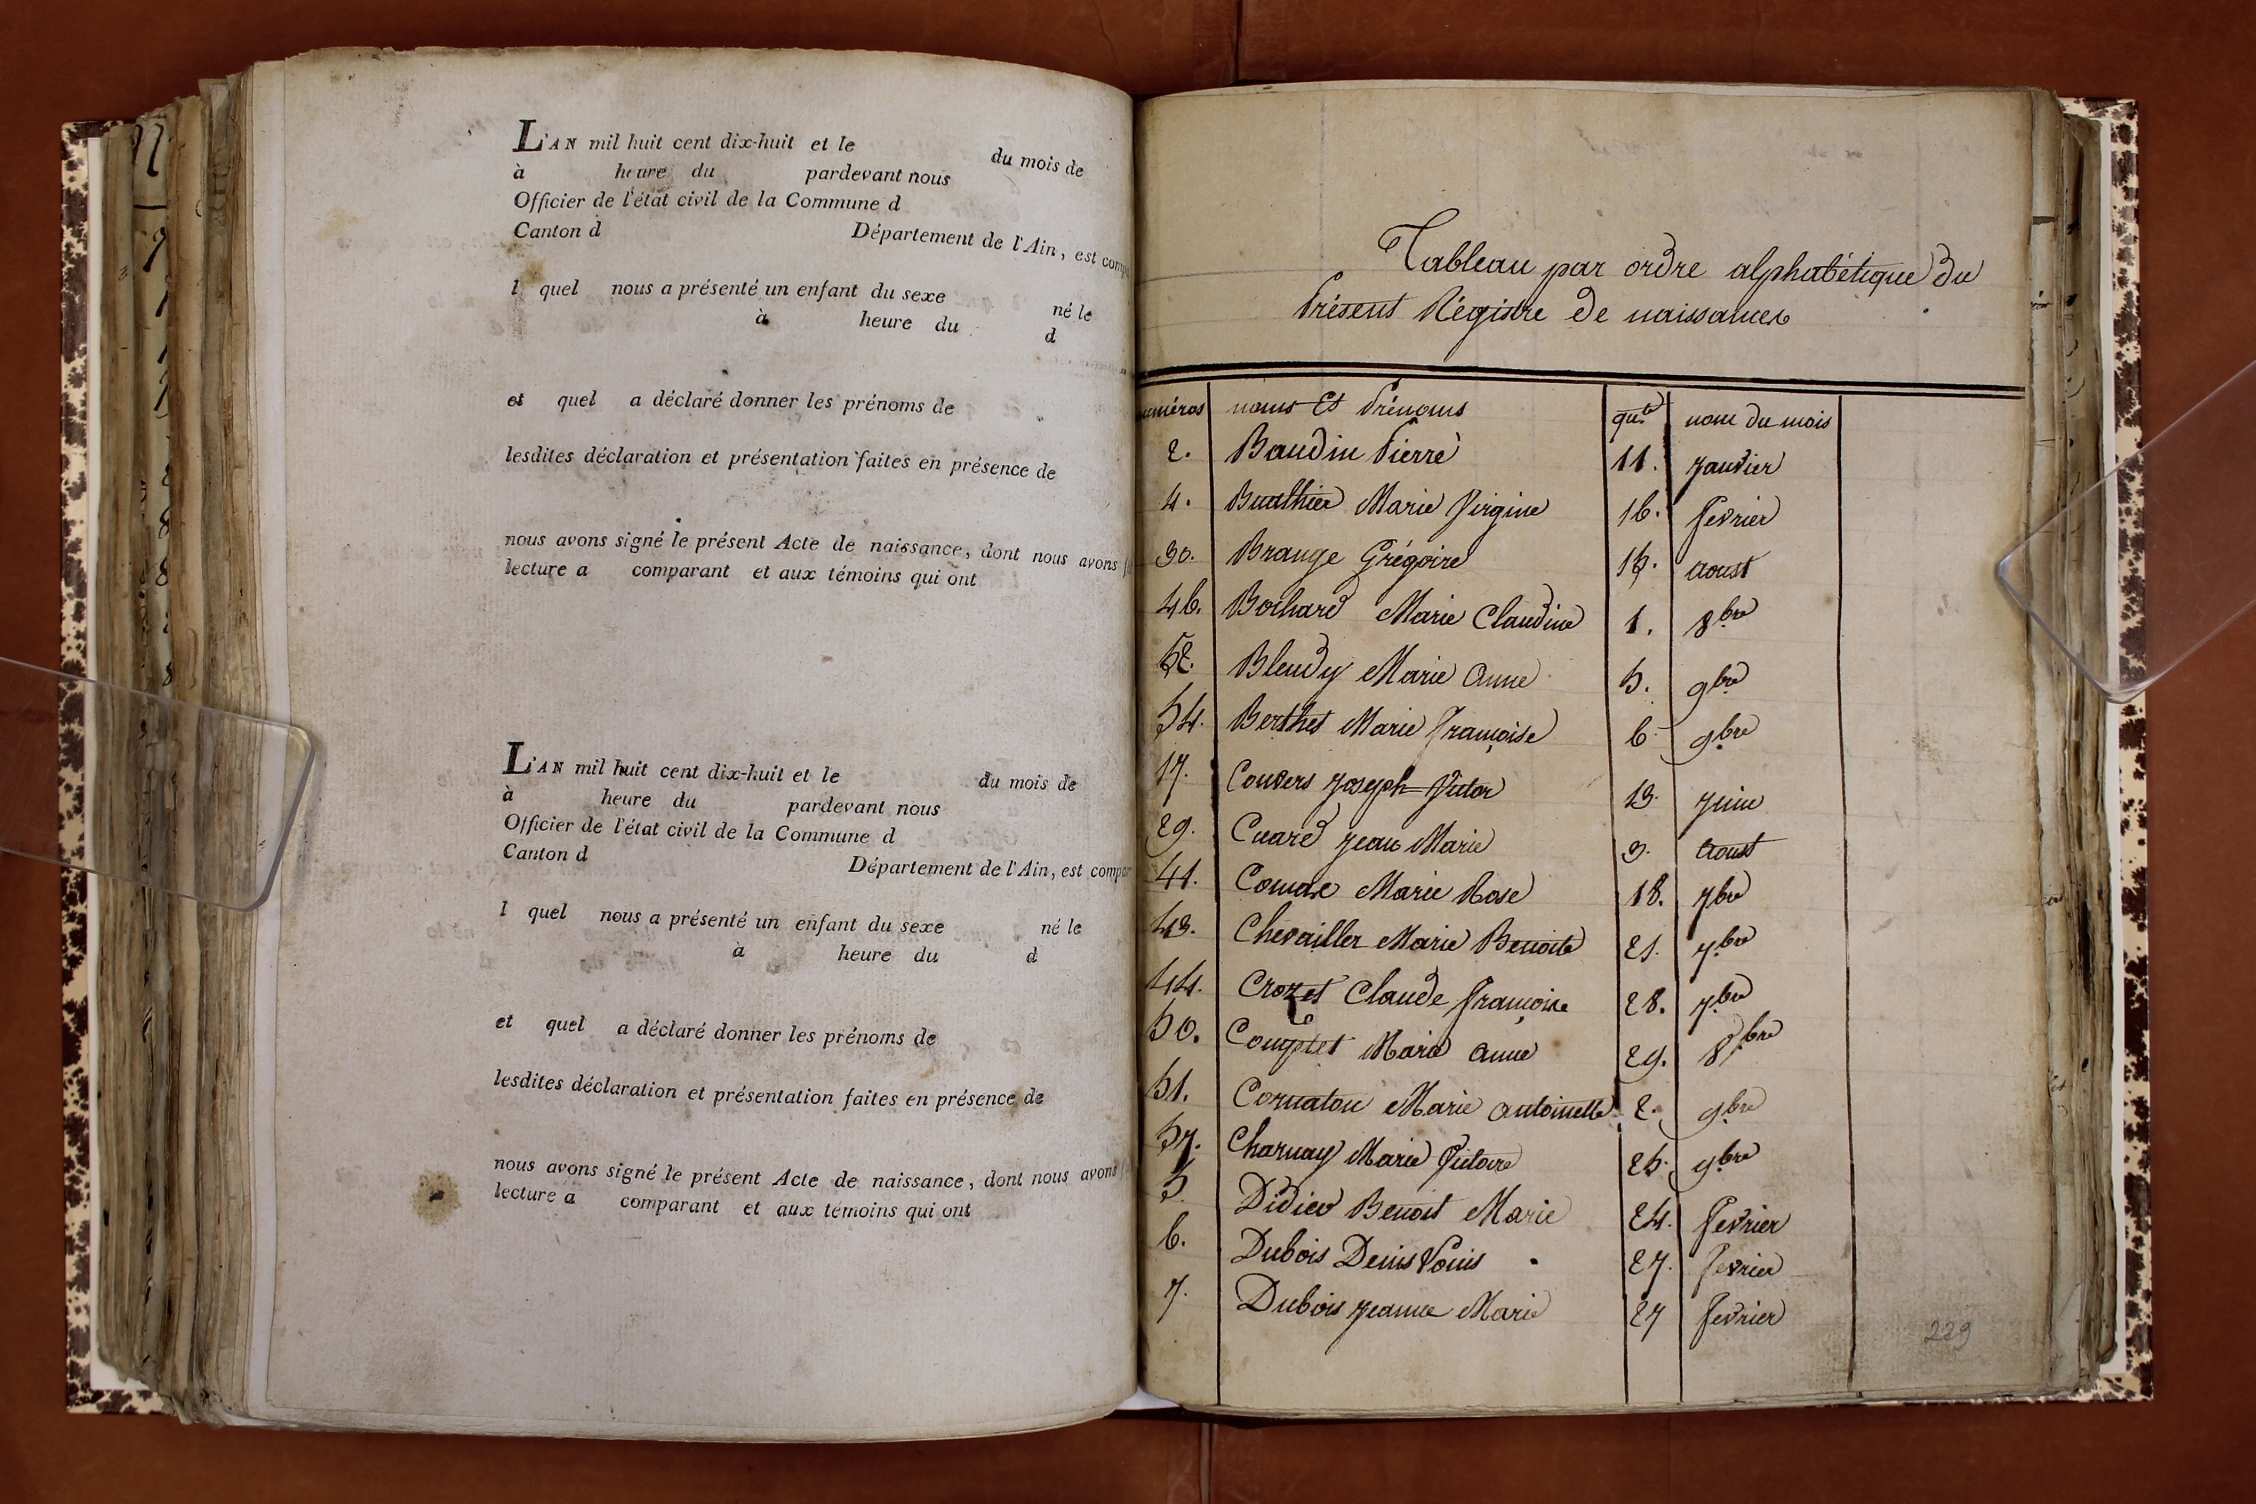 L'AN mil huit cent dix-huit et le du mois de
à heure du pardevant nous
Officier de l'état civil de la Commune d
Canton d Département de l'Ain, est comp
l quel nous a présenté un enfant du sexe né le
à heure du d
et quel a déclaré donner les prénoms de
lesdites déclaration et présentation faites en présence de
nous avons signé le présent Acte de naissance, dont nous avons
lecture a comparant et aux témoins qui ont
L'AN mil huit cent dix-huit et le du mois de
à heure du pardevant nous
Officier de l'état civil de la Commune d
Canton d Département de l'Ain, est compar
l quel nous a présenté un enfant du sexe né le
à heure du d
et quel a déclaré donner les prénoms de
lesdites déclaration et présentation faites en présence de
nous avons signé le présent Acte de naissance, dont nous avons
lecture a comparant et aux témoins qui ont
Tableau par ordre alphabétique du
Présent Régistre de naissances
numéros noms et Prénoms qute nom du mois
2. Baudin Pierre 11. janvier
4. Buathier Marie Virgine 16. fevrier
30. Brange Grégoire 15. aoust
46. Bochard Marie Claudine 1. 8bre
52. Blendy Marie Anne 5. 9bre
54. Berthet Marie Françoise 6 9bre
17. Convers joseph Victor 13. juin
29. Cuard jean Marie 9. aoust
41. Comax Marie Rose 18. 7bre
43. Chevailler Marie Benoite 21. 7bre
44. Crozet Claude Françoise 28. 7bre
50. Comptet Marie anne 29. 8bre
51. Cornaton Marie antoinette 2. 9bre
57. Charnay Marie Victoire 25. 9bre
5. Didier Benoit Marie 24. fevrier
6. Dubois Denis Louis 27. fevrier
7. Dubois jeanne Marie 27 fevrier
229